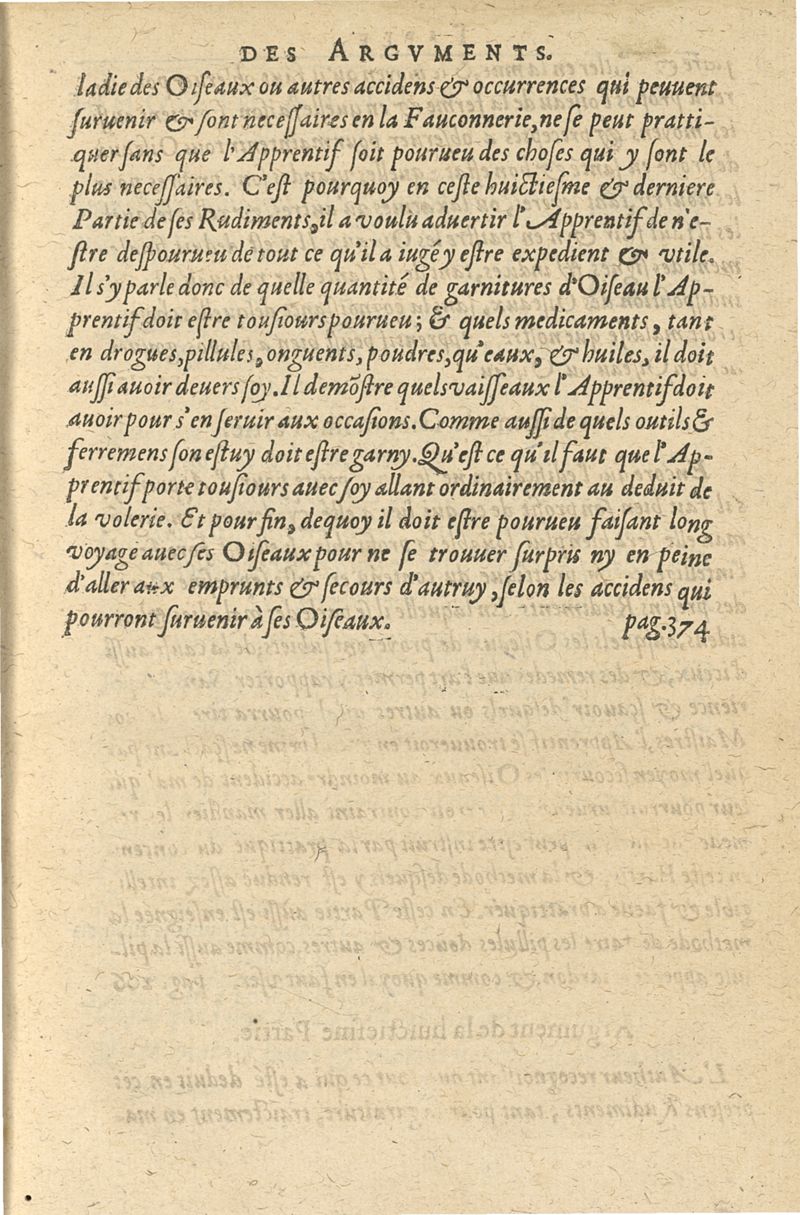 DES ARGVMENTS.
ladie des Oiſeaux ou autres accidens & occurrences qui peuuent
ſuruenir & ſont neceſſaires en la Fauconnerie, ne ſe peut pratti-
quer ſans que l'Apprentif ſoit pourueu des choſes qui y ſont le
plus neceſſaires. C'eſt pourquoy en ceſte huictieſme & derniere
Partie de ſes Rudiments, il a voulu aduertir l'Apprentif de n'e-
ſtre deſpourueu de tout ce qu'il a iugé y eſtre expedient & vtile.
Il s'y parle donc de quelle quantité de garnitures d'Oiſeau l'Ap-
prentif doit eſtre touſiours pourueu; & quels medicaments, tant
en drogues, pillules, onguents, poudres, qu'eaux, & huiles, il doit
auſſi auoir deuers ſoy. Il demõſtre quels vaiſſeaux l'Apprentif doit
auoir pour s'en ſeruir aux occaſions. Comme auſſi de quels outils &
ferremens ſon eſtuy doit eſtre garny. Qu'eſt ce qu'il faut que l'Ap-
prentif porte touſiours auec ſoy allant ordinairement au deduit de
la volerie. Et pour fin, dequoy il doit eſtre pourueu faiſant long
voyage auec ſes Oiſeaux pour ne ſe trouuer ſurpris ny en peine
d'aller aux emprunts & ſecours d'autruy, ſelon les accidens qui
pourront ſuruenir à ſes Oiſeaux. pag. 374